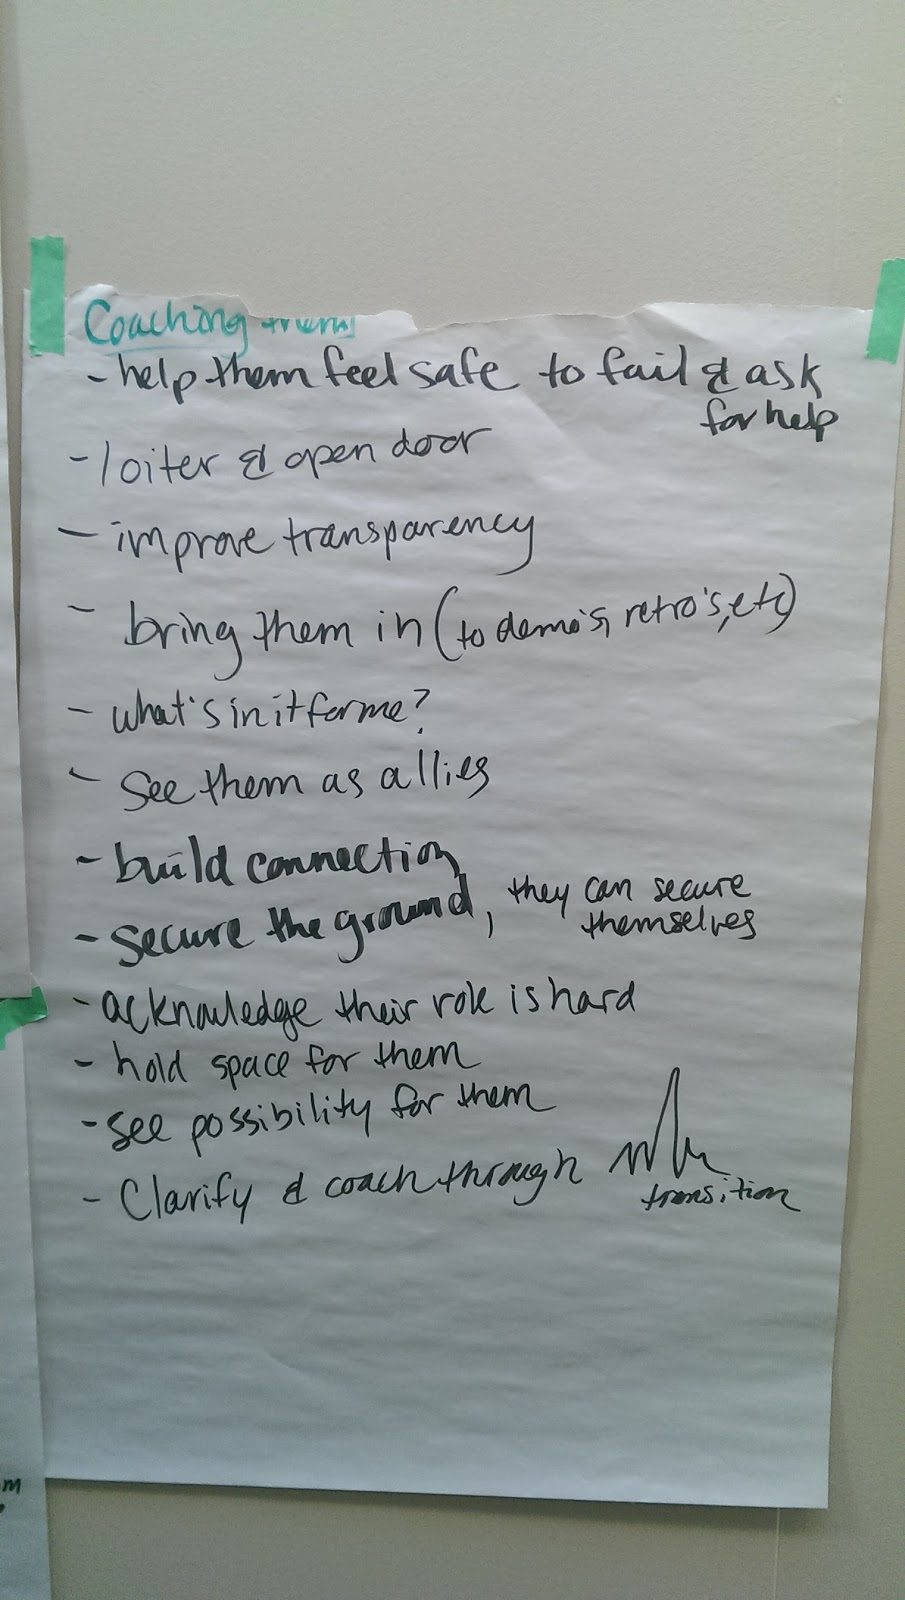 Coaching them
- help them feel safe to fail & ask
for help
- loiter & open door
- improve transparency
- bring them in (to demo's, retro's, etc)
- what's in it for me?
- See them as allies
- build connection
- secure the ground, they can secure
themselves
- acknowledge their role is hard
- hold space for them
- see possibility for them
- Clarify & coach through
transition
m